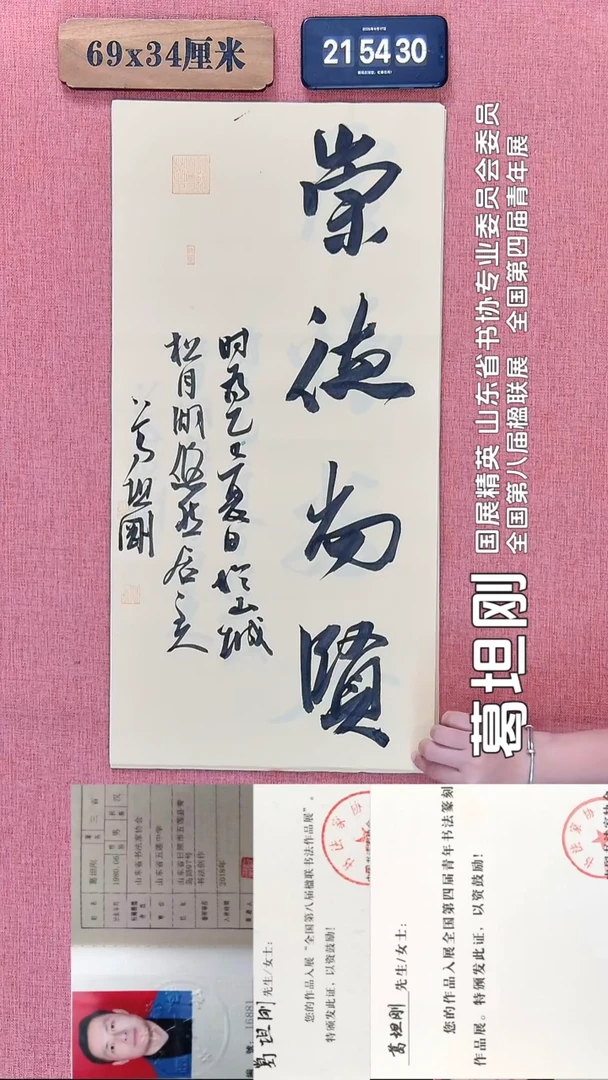 69x34厘米
21 54 30
崇德尚賢
时为乙巳夏日於山城
松月湖悠然居之
葛坦刚
葛坦刚
国展精英 山东省书协专业委员会委员
全国第八届楹联展 全国第四届青年展
山东省书法家协会
山东省五莲中学
书法创作
2018年
16881
葛坦刚 先生/女士:
您的作品入展“全国第八届楹联书法作品展”。
特颁发此证,以资鼓励!
葛坦刚 先生/女士:
您的作品入展全国第四届青年书法篆刻
作品展。特颁发此证,以资鼓励!